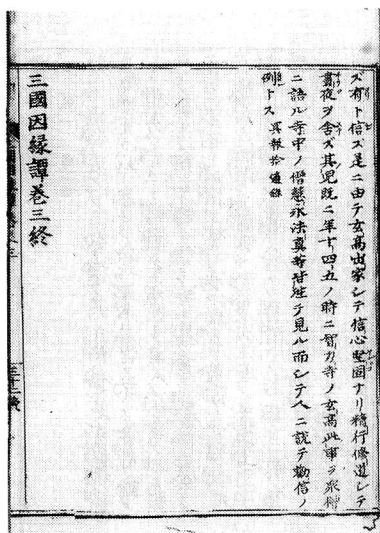 ズ有ト信ズ是ニ由テ玄高出家シテ信心堅固ナリ精行修道シテ
晝夜ヲ舎ズ其児既ニ年十四五ノ時ニ智力寺ノ玄高此事ヲ衆僧
ニ語ル寺中ノ僧慧永法真等皆往テ見ル而シテ人ニ説テ勧信ノ
例トス 冥報拾遺録
三國因縁譚巻三終